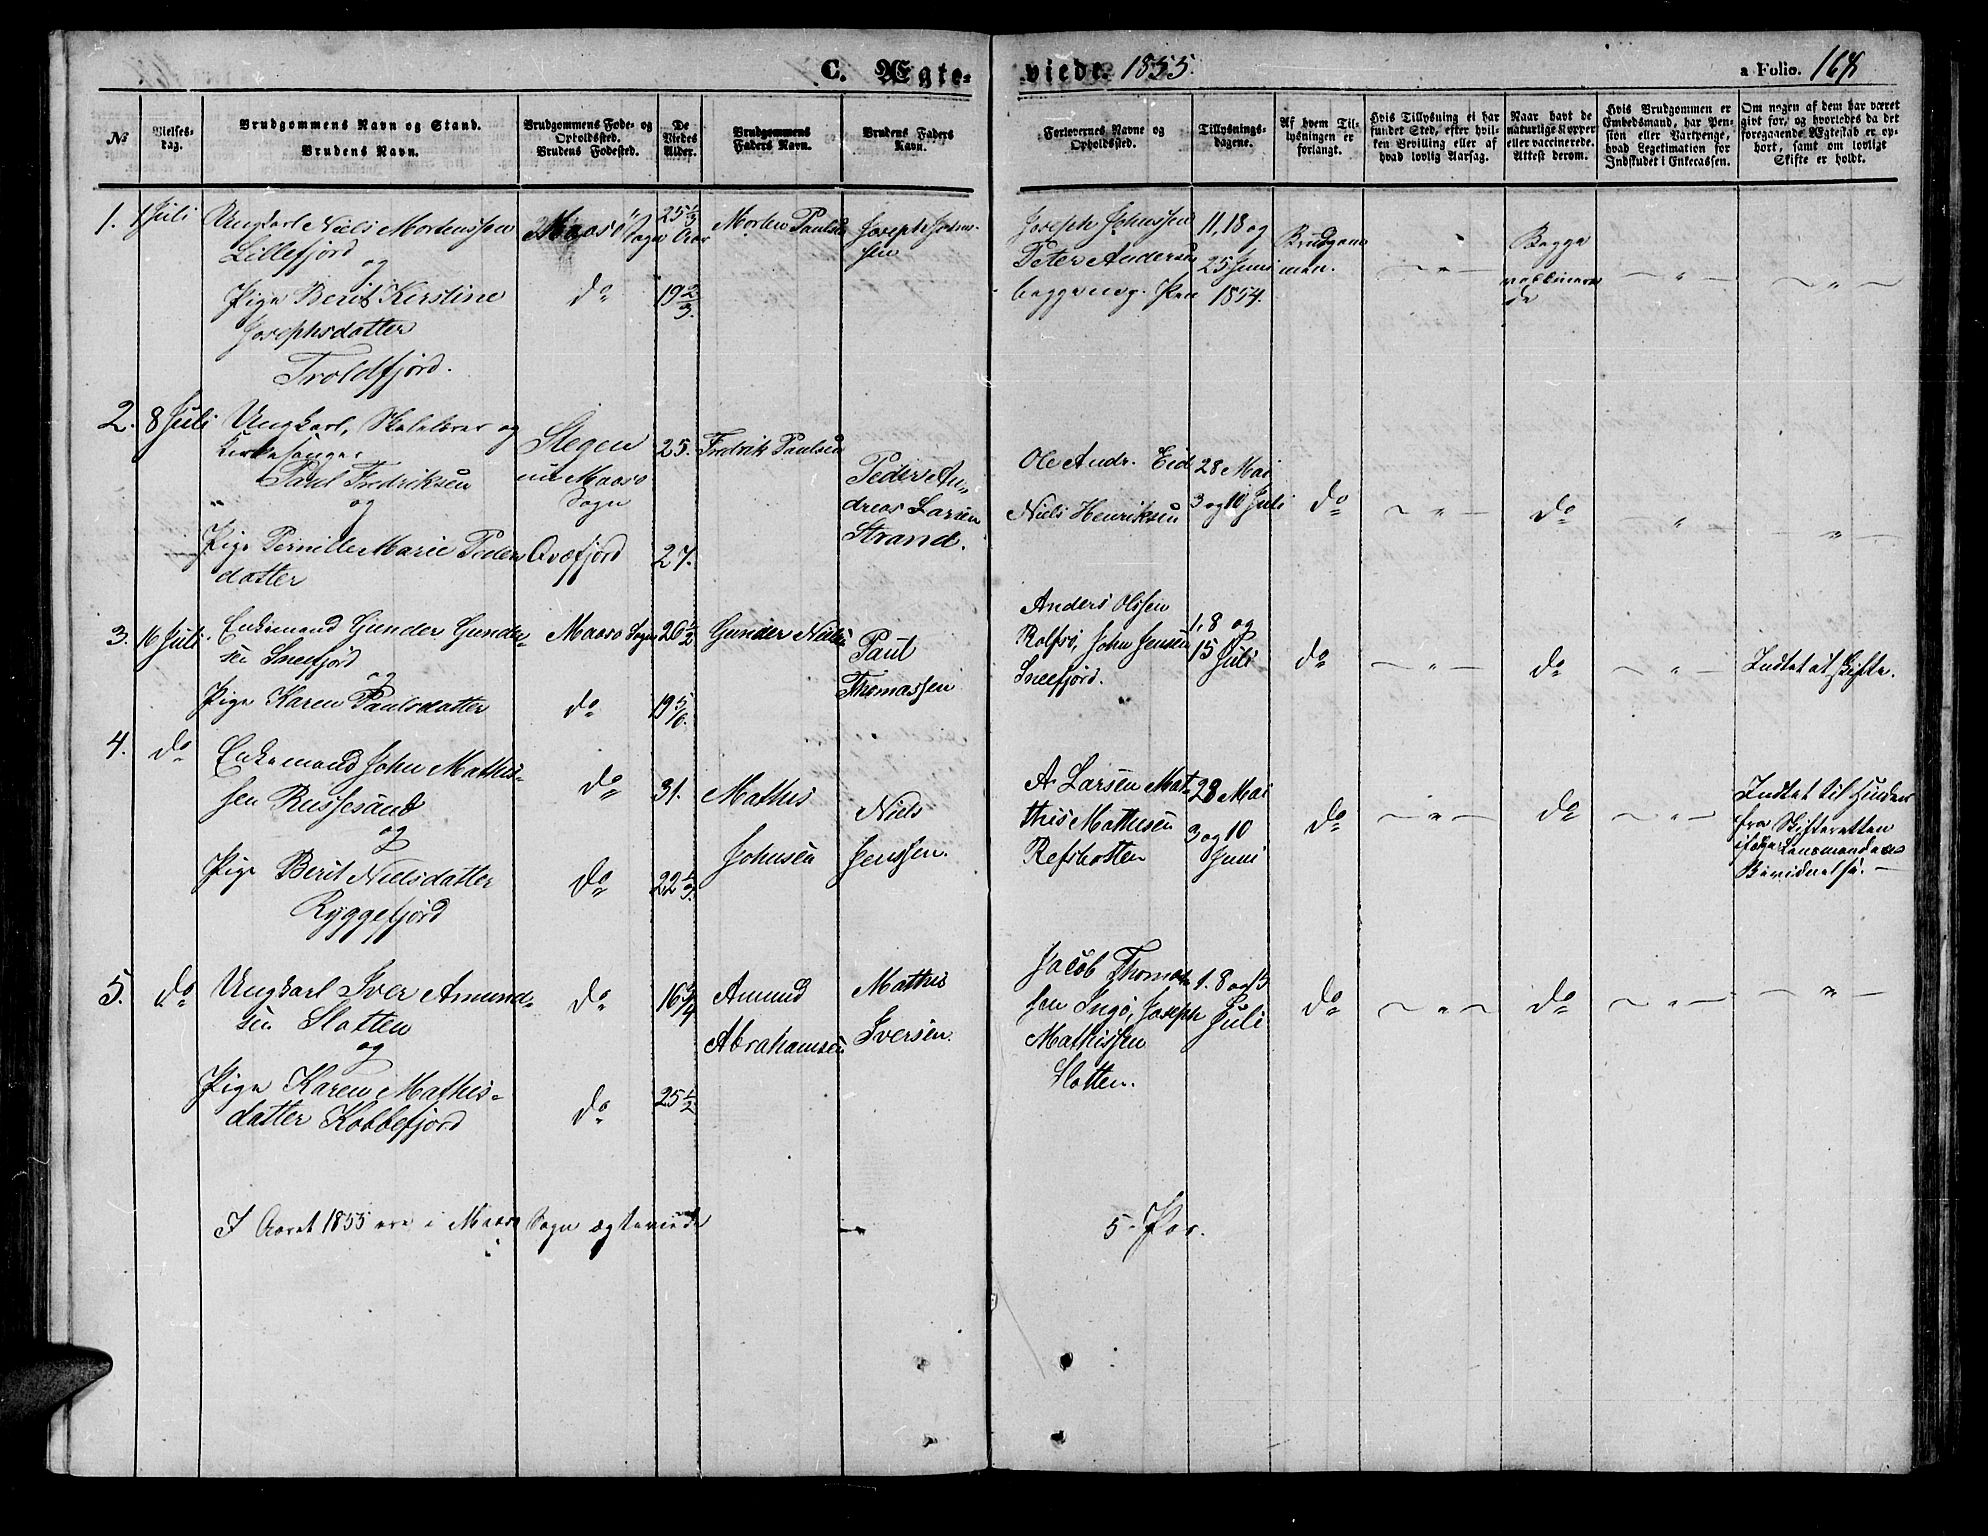 C. Ægte-
viede. 1855.
a Folio. 168
№
Vielses-
dag.
Brudgommens Navn og Stand.
Brudens Navn.
Brudgommens Føde- og
Opholdssted.
Brudens Fødested.
De
Viedes
Alder.
Brudgommens
Faders Navn.
Brudens Faders
Navn.
Forlovernes Navne og
Opholdssted.
Tillysnings-
dagene.
Af hvem Til-
lysningen er
forlangt.
Hvis Tillysning ei har
fundet Sted, efter hvil-
ken Bevilling eller af
hvad lovlig Aarsag.
Naar havt de
naturlige Kopper
eller vaccinerede.
Attest derom.
Hvis Brudgommen er
Embedsmand, har Pen-
sion eller Vartpenge,
hvad Legitimation for
Indskudet i Enkecassen.
Om nogen af dem har været
givt for, og hvorledes da det
foregaaende Ægteskab er op-
hørt, samt om lovligt
Skifte er holdt.
1. 1 Juli
Ungkarl Niels Mortenssen
Lillefjord
og
Pige Berit Kirstine
Josephsdatter
Troldfjord.
Maasø Sogn
do
25 1/3
Aar
19 2/3.
Morten Paulsen
Joseph Johns-
sen
Joseph Johnssen
Peter Andersen
begge
11, 18 og
25 Juni
1854.
Brudgom-
men.
— " —
Begge
vaccinere-
de
— " —
— " —
2. 8 Juli
Ungkarl, Skolelærer og
Kirkesanger
Paul Fredriksen
og
Pige Pernille Marie Peders
datter
Stegen
nu Maasø
Sogn
Qvæfjord
25.
27.
Fredrik Paulsen
Peder An-
dreas Larsen
Strand.
Ole Andr. Eid
Niels Henriksen
28 Mai
3 og 10 Juli
do
— " —
do
"
— " —
3. 16 Juli.
Enkemand Gunder Gunder-
sen Sneefjord
og
Pige Karen Paulsdatter
Maasø Sogn
do
26 1/2
19 5/6.
Gunder Nielsen
Paul
Thomassen
Anders Olssen
Rolfsø, John Jensen
Sneefjord.
1, 8 og
15 Juli
do
— " —
do
— " —
Intet at skifte.
4. do
Enkemand John Mathis-
sen Russesund
og
Pige Berit Nielsdatter
Ryggefjord
do
do
31.
22 1/3.
Mathis
Johnsen
Niels
Jenssen.
A. Larsen Mat-
this Mathisen
Refsbotten
28 Mai
3 og 10
Juni
do
— " —
do
— " —
Intet til Hinder
fra Skifteretten
ifølge Lensmandens
Bevidnelse. —
5. do
Ungkarl Iver Amund-
sen Slotten
og
Pige Karen Mathis-
datter Kobbefjord
do
do
16 3/4
25 1/2
Amund
Abrahamsen
Mathis
Iversen.
Jacob Thomas-
sen Ingø, Joseph
Mathissen
Slotten.
1. 8 og 15
Juli
do
— " —
do
— " —
— " —
I Aaret 1855 ere i Maasø Sogn ægteviede — 5 Par.